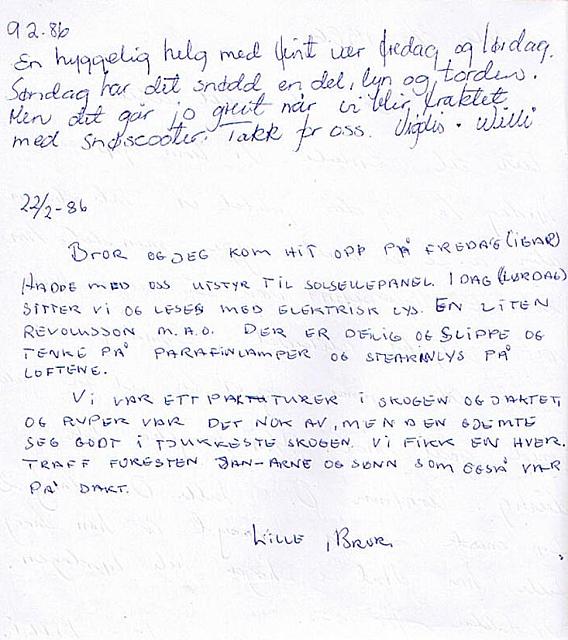 9 2.86
En hyggelig helg med fint vær fredag og lørdag.
Søndag har det snødd en del, lyn og torden.
Men det går jo greit når vi blir fraktet
med snøscooter. Takk for oss. Vigdis. Willi
22/2-86
BROR OG JEG KOM HIT OPP PÅ FREDAG (IGÅR)
HADDE MED OSS UTSTYR TIL SOLSELLEPANEL. I DAG (LØRDAG)
SITTER VI OG LESER MED ELEKTRISK LYS. EN LITEN
REVOLUSJON M.A.O. DER ER DEILIG OG SLIPPE OG
TENKE PÅ PARAFINLAMPER OG STEARINLYS PÅ
LOFTENE.
VI VAR ETT PAR TURER I SKOGEN OG JAKTET,
OG RYPER VAR DET NOK AV, MEN DEN GJEMTE
SEG GODT I TJUKKESTE SKOGEN. VI FIKK EN HVER.
TRAFF FORESTEN JAN-ARNE OG SØNN SOM OGSÅ VAR
PÅ JAKT.
LILLE, BROR.